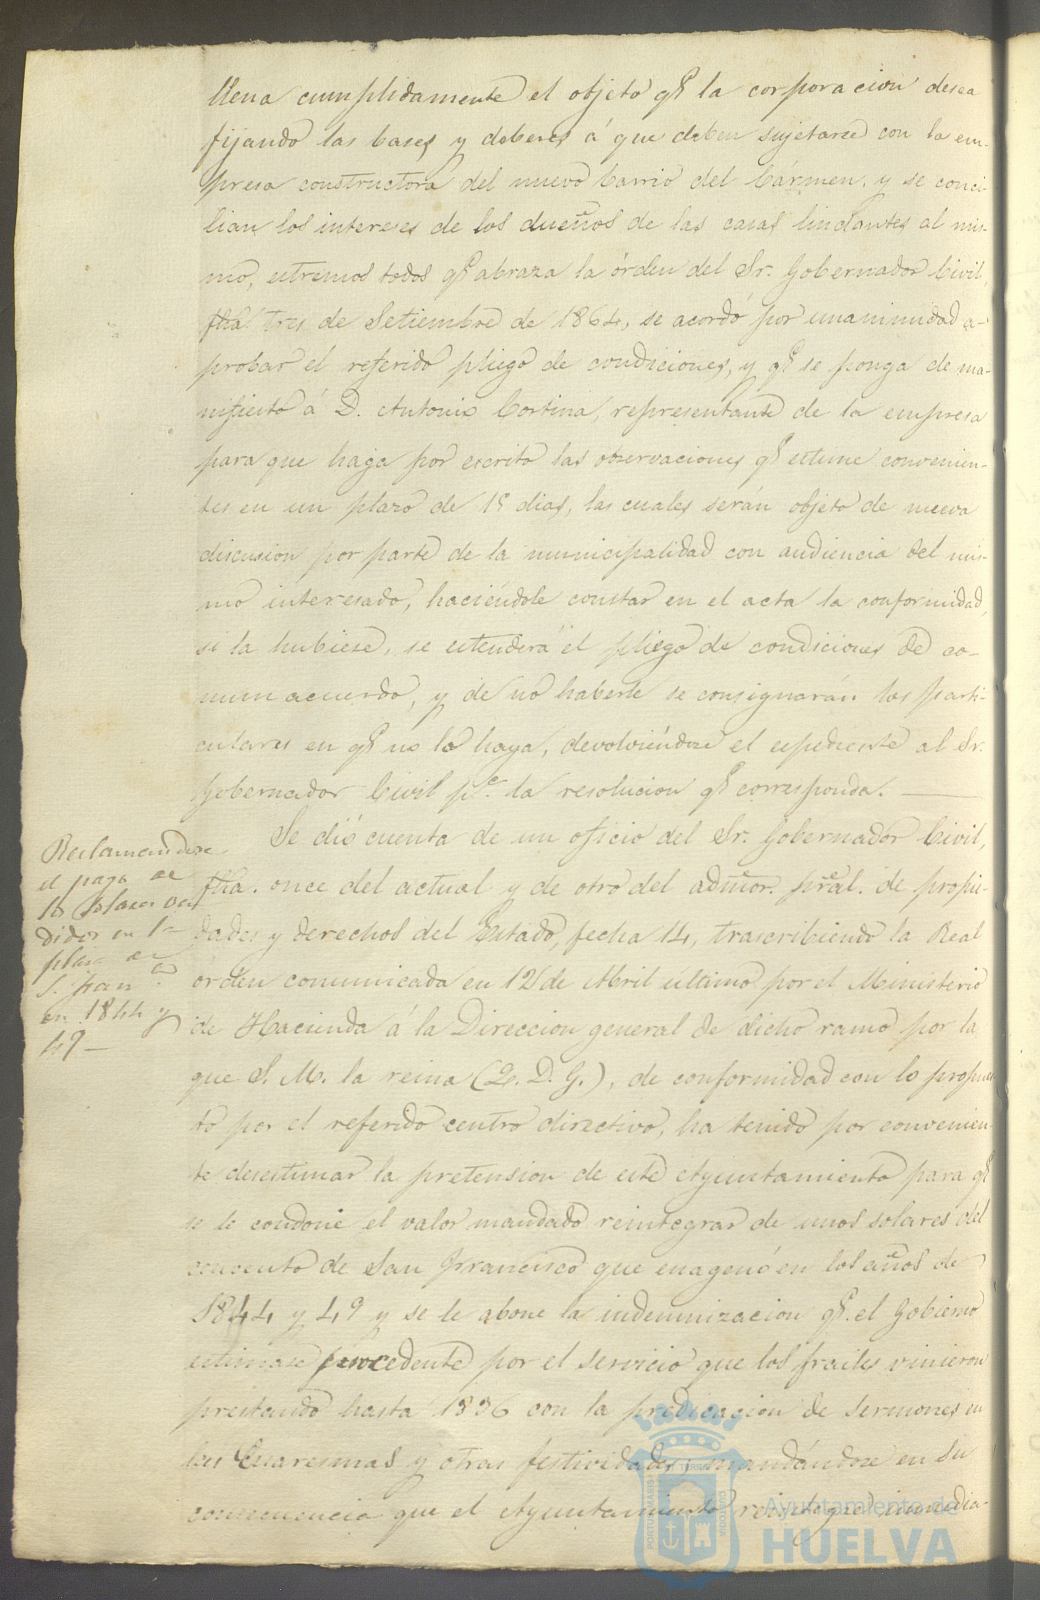 llena cumplidamente el objeto qe la corporacion desea
fijando las bases y deberes á que deben sujetarse con la em-
presa constructora del nuevo barrio del Cármen, y se conci-
lian los intereses de los dueños de las casas lindantes al mis-
mo, estremos todos qe abraza la órden del Sr. Gobernador Civil,
fha. tres de Setiembre de 1864, se acordó por unanimidad a-
probar el referido pliego de condiciones, y qe se ponga de ma-
nifiesto á D. Antonio Cortina, representante de la empresa
para que haga por escrito las observaciones qe estime convenien-
tes en un plazo de 15 dias, las cuales serán objeto de nueva
discusion por parte de la municipalidad con audiencia del mis-
mo interesado, haciéndole constar en el acta la conformidad,
si la hubiese, se estenderá el pliego de condiciones de co-
mun acuerdo, y de no haberle se consignarán los parti-
culares en qe no lo haya, devolviéndose el espediente al Sr.
Gobernador Civil pa. la resolucion qe corresponda.
Reclamandose
el pago de
los solares ven
didos en la
plaza de
S. Franco.
en 1844 y
49
Se dió cuenta de un oficio del Sr. Gobernador Civil,
fha. once del actual y de otro del admor. pral. de propie-
dades y derechos del Estado, fecha 14, trascribiendo la Real
órden comunicada en 12 de Abril ultimo por el Ministerio
de Hacienda á la Direccion general de dicho ramo por la
que S. M. la reina (Q. D. G.), de conformidad con lo propues-
to por el referido centro directivo, ha tenido por convenien-
te desestimar la pretension de este Ayuntamiento para qe
se le condone el valor mandado reintegrar de unos solares del
convento de San Francisco que enagenó en los años de
1844 y 49 y se le abone la indemnizacion qe. el Gobierno
estimase procedente por el servicio que los frailes vinieron
prestando hasta 1836 con la predicacion de sermones en
las Cuaresmas y otras festividades; mandándose en su
consecuencia que el Ayuntamiento reintegre inmedia-
Ayuntamiento de
HUELVA